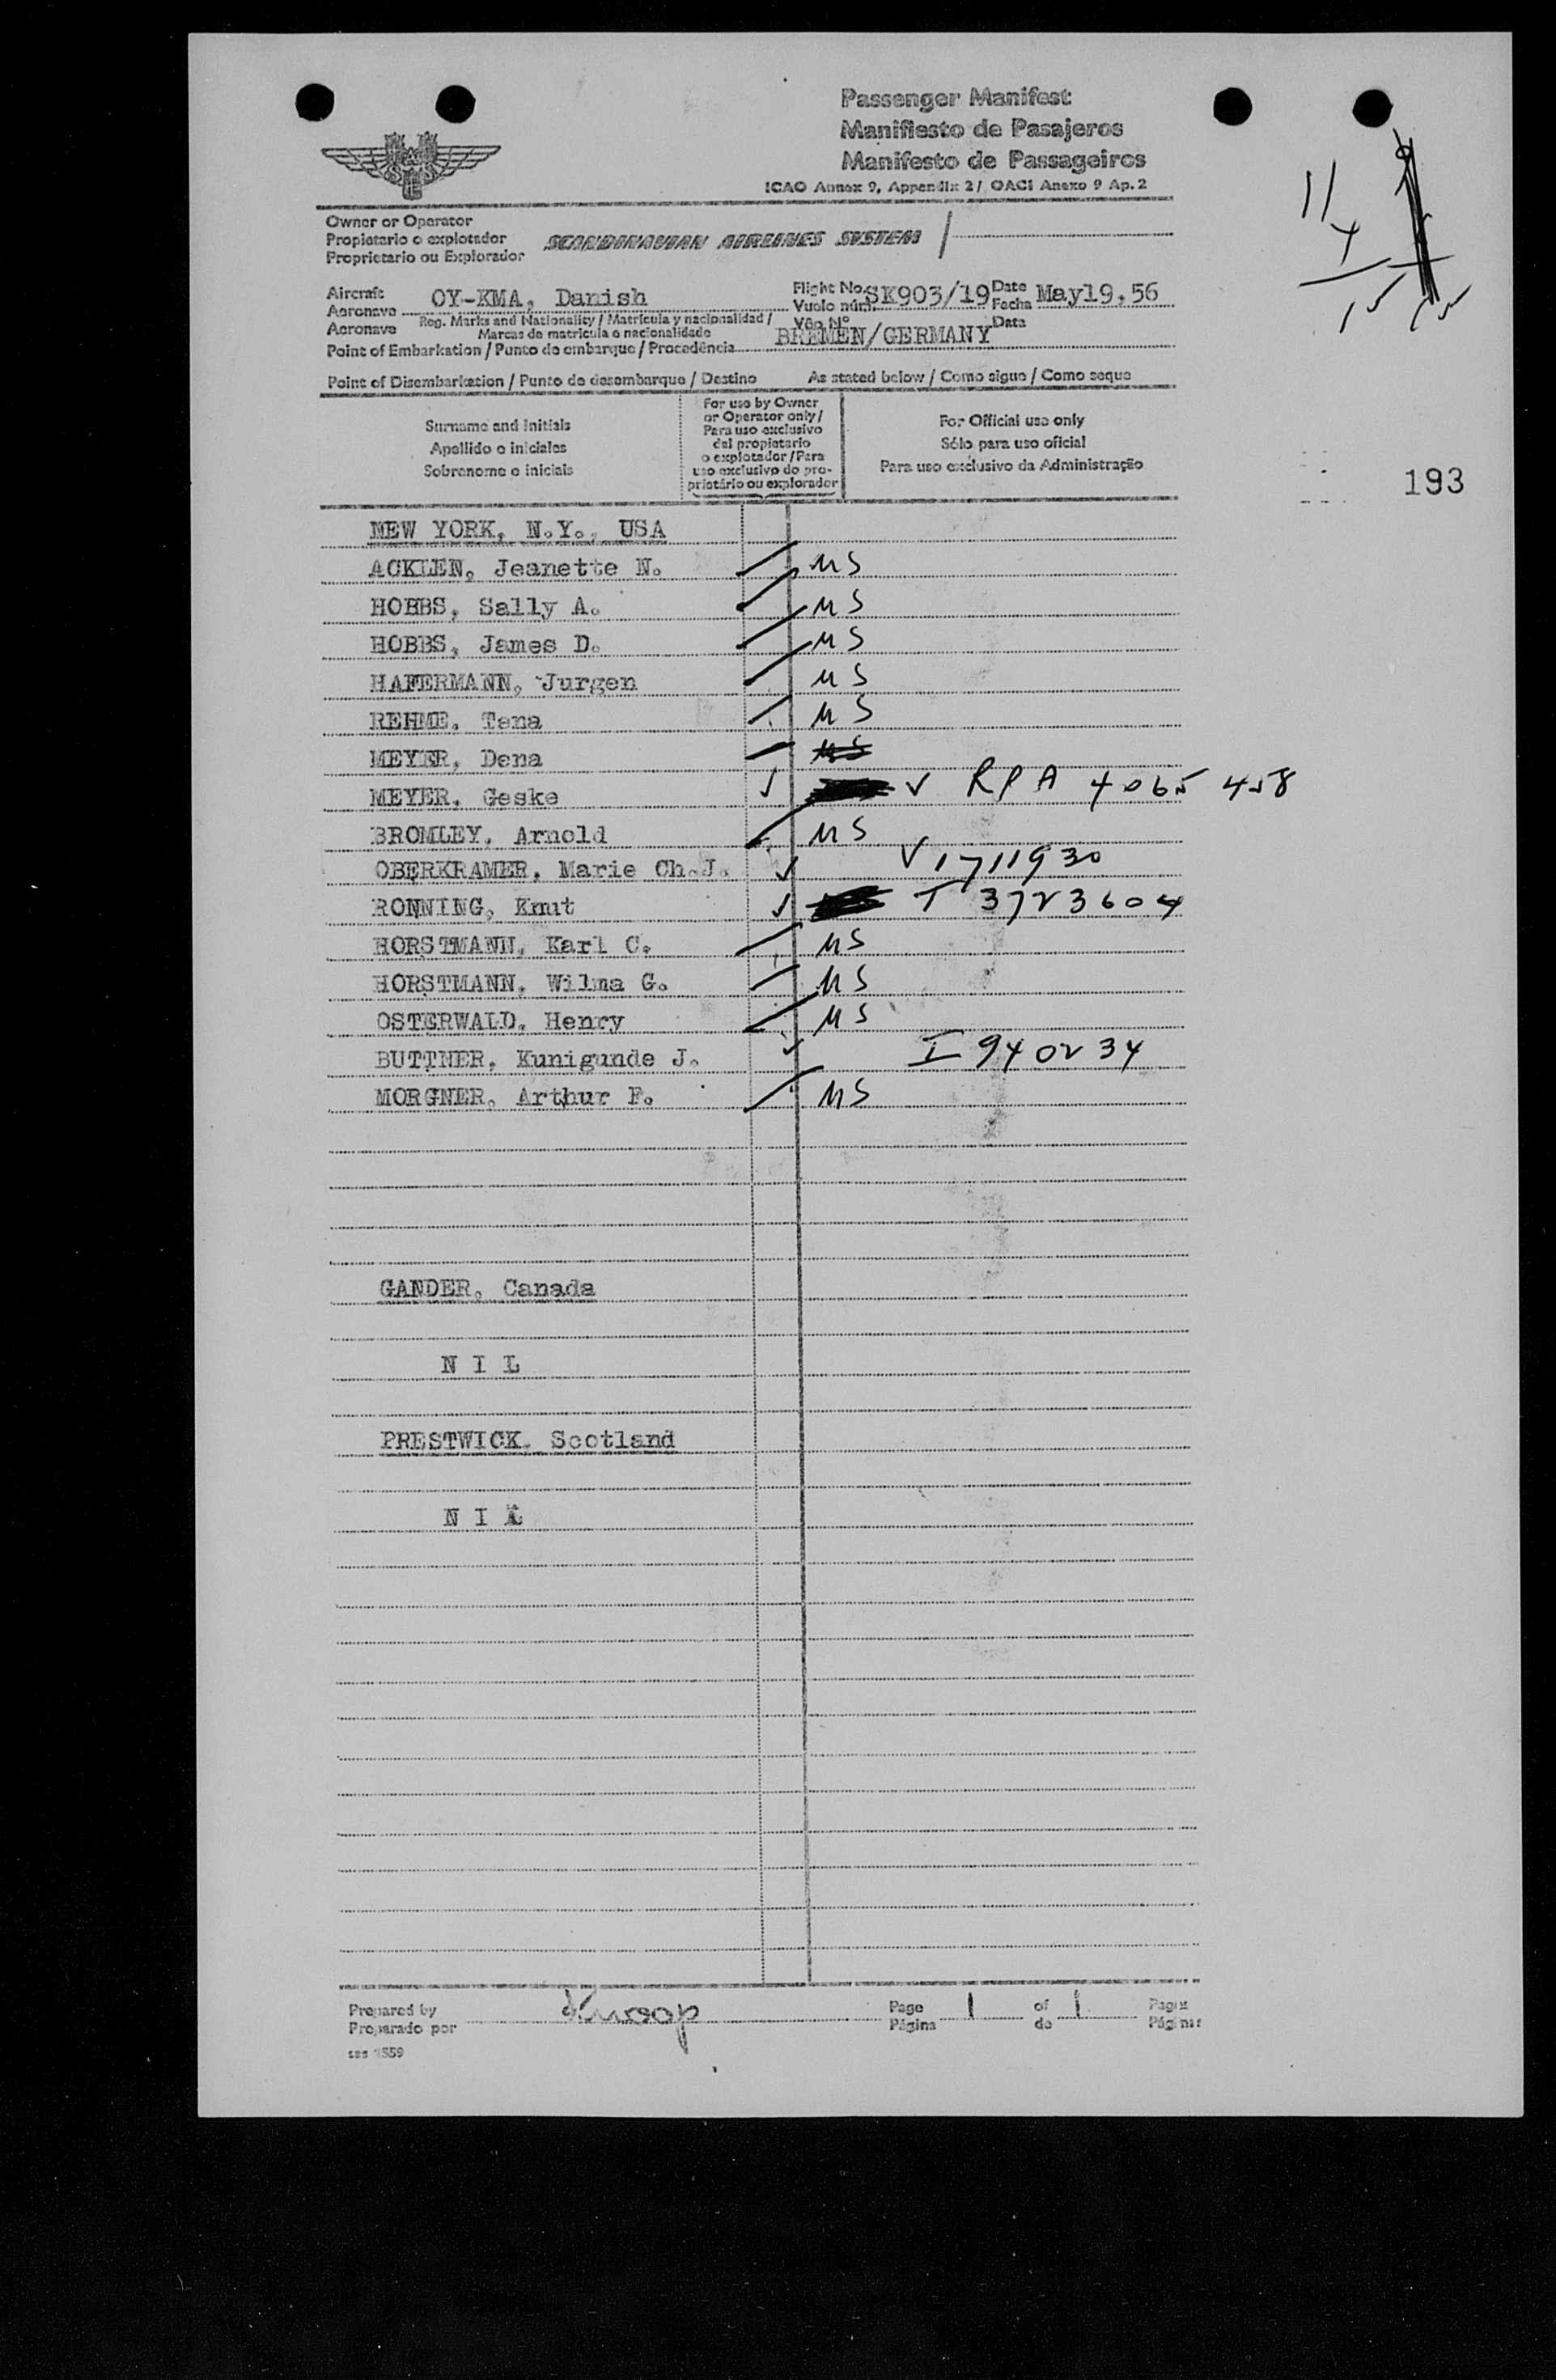 Passenger Manifest
Manifiesto de Pasajeros
Manifesto de Passageiros
ICAO Annex 9, Appendix 2 / OACI Anexo 9 Ap. 2
11
4
15
15
SAS
Owner or Operator
Propietario o explotador
Proprietario ou Explorador
SCANDINAVIAN AIRLINES SYSTEM
Aircraft
Aeronave
Aeronave
OY-KMA, Danish
Reg. Marks and Nationality / Matrícula y nacionalidad /
Marcas de matrícula e nacionalidade
Flight No.
Vuelo núm.
Vôo Nº
SK903/19
Date
Fecha
Data
May19.56
Point of Embarkation / Punto de embarque / Procedência
BREMEN/GERMANY
Point of Disembarkation / Punto de desembarque / Destino
As stated below / Como sigue / Como seque
Surname and Initials
Apellido e iniciales
Sobrenome e iniciais
For use by Owner
or Operator only /
Para uso exclusivo
del propietario
o explotador / Para
uso exclusivo do pro-
prietário ou explorador
For Official use only
Sólo para uso oficial
Para uso exclusivo da Administração
193
NEW YORK, N.Y., USA
ACKLEN, Jeanette N. US
HOBBS, Sally A. US
HOBBS, James D. US
HAFERMANN, Jurgen US
REHME, Tena US
MEYER, Dena US
MEYER, Geske V RPA 4065 458
BROMLEY, Arnold US
OBERKRAMER, Marie Ch.J. V 1711930
RONNING, Knut T 3723604
HORSTMANN, Karl C. US
HORSTMANN, Wilma G. US
OSTERWALD, Henry US
BUTTNER, Kunigunde J. I 940234
MORGNER, Arthur F. US
GANDER, Canada
N I L
PRESTWICK, Scotland
N I L
Prepared by
Preparado por
Page
Página
1
of
de
1
Pages
Páginas
sas 1559